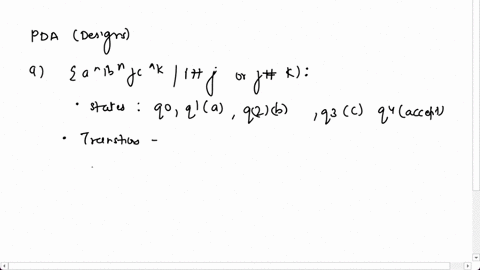 PDA (Designs)
a) {a^n b^n jc^nk | i# j or j# k):
• states : q0, q1(a), q(2)(b), q3(c) q4(accept)
• Transitions -